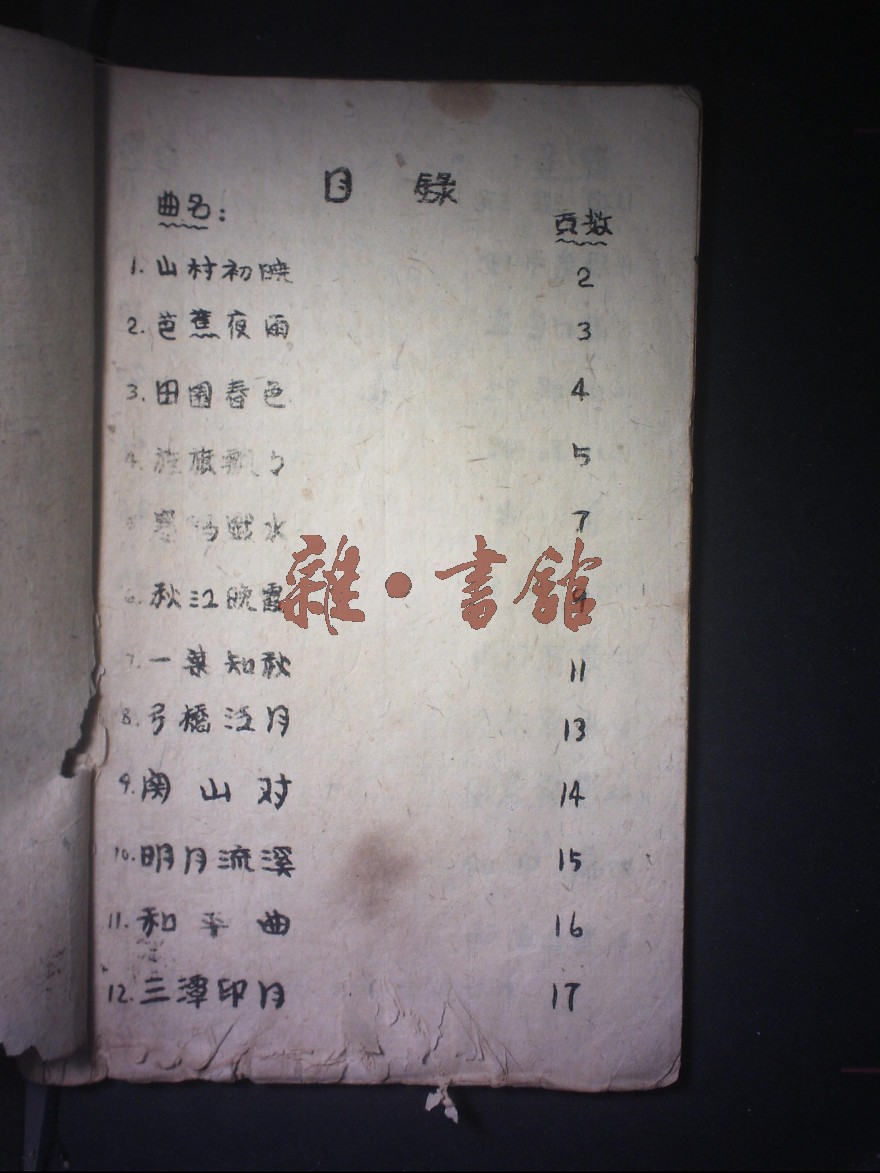 目 錄
曲名: 頁数
1. 山村初曉 2
2. 芭蕉夜雨 3
3. 田園春色 4
4. 旌旗飄々 5
寒鸦戲水 7
6. 秋江晚霞 9
雜·書館
7. 一葉知秋 11
8. 弓橋江月 13
9. 関山对 14
10. 明月流溪 15
11. 和平曲 16
12. 三潭印月 17